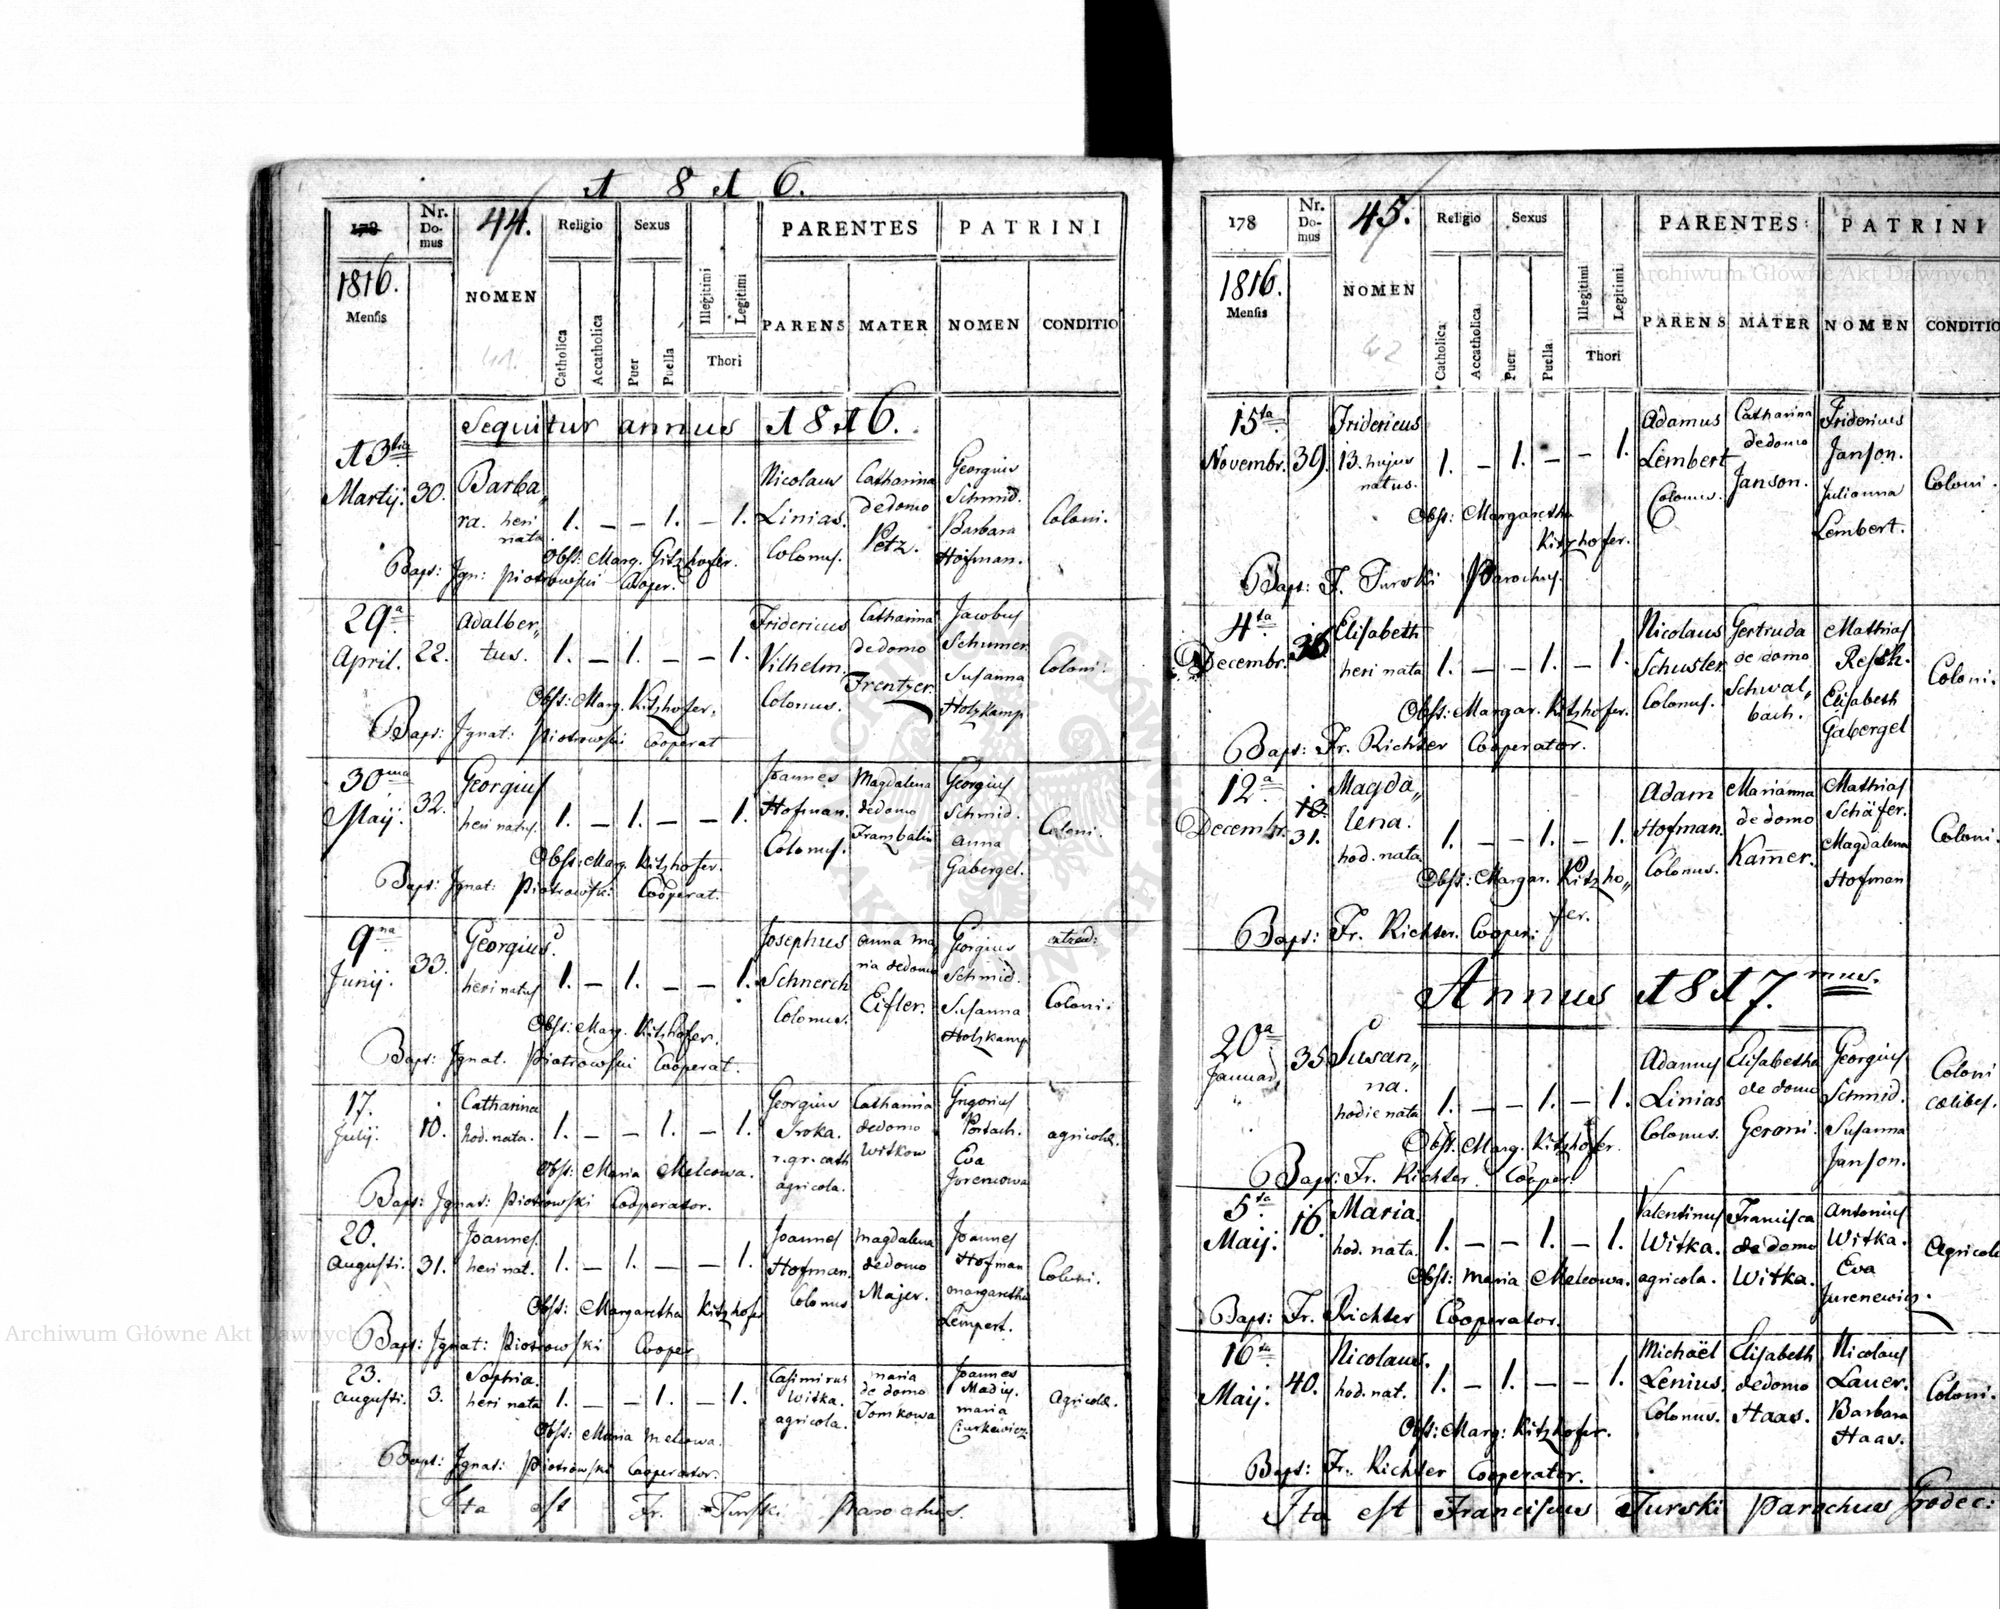 1 8 1 6.
178
Nr. Do- mus
44.
Religio
Sexus
PARENTES
PATRINI
1816.
Mensis
NOMEN
41.
Catholica
Accatholica
Puer
Puella
Illegitimi
Legitimi
Thori
PARENS
MATER
NOMEN
CONDITIO
Sequitur annus 1816.
13tia Martij. 30.
Barba„
ra. heri
nata
1. — — 1. — 1.
Nicolaus
Linias.
Colonus.
Catharina
de domo
Petz.
Georgius
Schmid.
Barbara
Hofman.
Coloni.
Obst: Marg. Gitzhofer.
Bapt: Ign: Piotrowski Cooper.
29a April. 22.
Adalber„
tus.
1. — 1. — — 1.
Fridericus
Vilhelm.
Colonus.
Catharina
de domo
Frentzer.
Jacobus
Schumer
Susanna
Holzkamp
Coloni.
Obst: Marg. Kitzhofer.
Bapt: Ignat: Piotrowski Cooperat
30ma Maij. 32.
Georgius
heri natus.
1. — 1. — — 1.
Joannes
Hofman.
Colonus.
Magdalena
de domo
Frambalin
Georgius
Schmid.
Anna
Gabergel.
Coloni.
Obst: Marg. Kitzhofer.
Bapt: Ignat: Piotrowski Cooperat.
9na Junij. 33.
Georgius.
heri natus
1. — 1. — — 1.
Josephus
Schnerch
Colonus.
Anna Ma
ria de domo
Eifler.
Georgius
Schmid.
Susanna
Holzkamp
extrad:
Coloni.
Obst: Marg. Kitzhofer.
Bapt: Ignat. Piotrowski Cooperat.
17. Julij. 10.
Catharina
hod. nata.
1. — — 1. — 1.
Georgius
Sroka.
r. gr. cath
agricola.
Catharina
de domo
Witkow
Grigorius
Eva
agricolæ.
Obst: Maria Melcowa.
Bapt: Ignat: Piotrowski Cooperator.
20. Augusti. 31.
Joannes
heri nat.
1. — 1. — — 1.
Joannes
Hofman.
Colonus
Magdalena
de domo
Majer.
Joannes
Hofman
Margaretha
Lempert.
Coloni.
Obst: Margaretha Kitzhofer
Bapt: Ignat: Piotrowski Cooper
23. Augusti. 3.
Sophia.
heri nata
1. — — 1. — 1.
Casimirus
Witka.
agricola.
Maria
de domo
Tomkowa
Joannes
Madij.
Maria
Ciurkewicz
Agricolæ.
Obst: Maria Melcowa.
Bapt: Ignat: Piotrowski Cooperator.
Ita est Fr. Turski Parochus.
178
Nr. Do- mus
45.
Religio
Sexus
PARENTES
PATRINI
1816.
Mensis
NOMEN
42
Catholica
Accatholica
Puer
Puella
Illegitimi
Legitimi
Thori
PARENS
MATER
NOMEN
CONDITIO
15ta Novembr. 39.
Fridericus
13. hujus
natus.
1. — 1. — — 1.
Adamus
Lembert
Colonus.
Catharina
de domo
Janson.
Fridericus
Janson.
Julianna
Lembert.
Coloni.
Obst: Margaretha
Kitzhofer.
Bapt: F. Turski Parochus.
4ta Decembr. 36
Elisabeth
heri nata
1. — — 1. — 1.
Nicolaus
Schuster
Colonus.
Gertruda
de domo
Schwal„
bach.
Mathias
Resch.
Elisabeth
Gabergel
Coloni.
Obst: Margar. Kitzhofer.
Bapt: Fr. Richter Cooperator.
12a Decembr. 18. 31.
Magda„
lena.
hod. nata
1. — — 1. — 1.
Adam
Hofman.
Colonus.
Marianna
de domo
Kam̄er.
Mathias
Schäfer.
Magdalena
Hofman
Coloni.
Obst: Margar. Kitzho„
fer.
Bapt: Fr. Richter. Cooper:
Annus 1817.mus.
20a Januar. 35
Susan„
na.
hodie nata
1. — — 1. — 1.
Adamus
Linias
Colonus.
Elisabetha
de domo
Geroni.
Georgius
Schmid.
Susanna
Janson.
Coloni
cælibes.
Obst: Marg. Kitzhofer.
Bapt: Fr. Richter. Cooper.
5ta Maij. 16.
Maria.
hod. nata.
1. — — 1. — 1.
Valentinus
Witka.
agricola.
Francisca
de domo
Witka.
Antonius
Witka.
Eva
Jurenewicz.
Agricolæ
Obst: Maria Melcowa.
Bapt: Fr. Richter Cooperator.
16ta Maij. 40.
Nicolaus.
hod. nat.
1. — 1. — — 1.
Michaël
Lenius
Colonus.
Elisabeth
de domo
Haas.
Nicolaus
Lauer.
Barbara
Haas.
Coloni.
Obst: Marg: Kitzhofer.
Bapt: Fr. Richter Cooperator.
Ita est Franciscus Turski Parochus Grodec:
Archiwum Główne Akt Dawnych
Archiwum Główne Akt Dawnych
ARCHIWUM GŁÓWNE AKT DAWNYCH